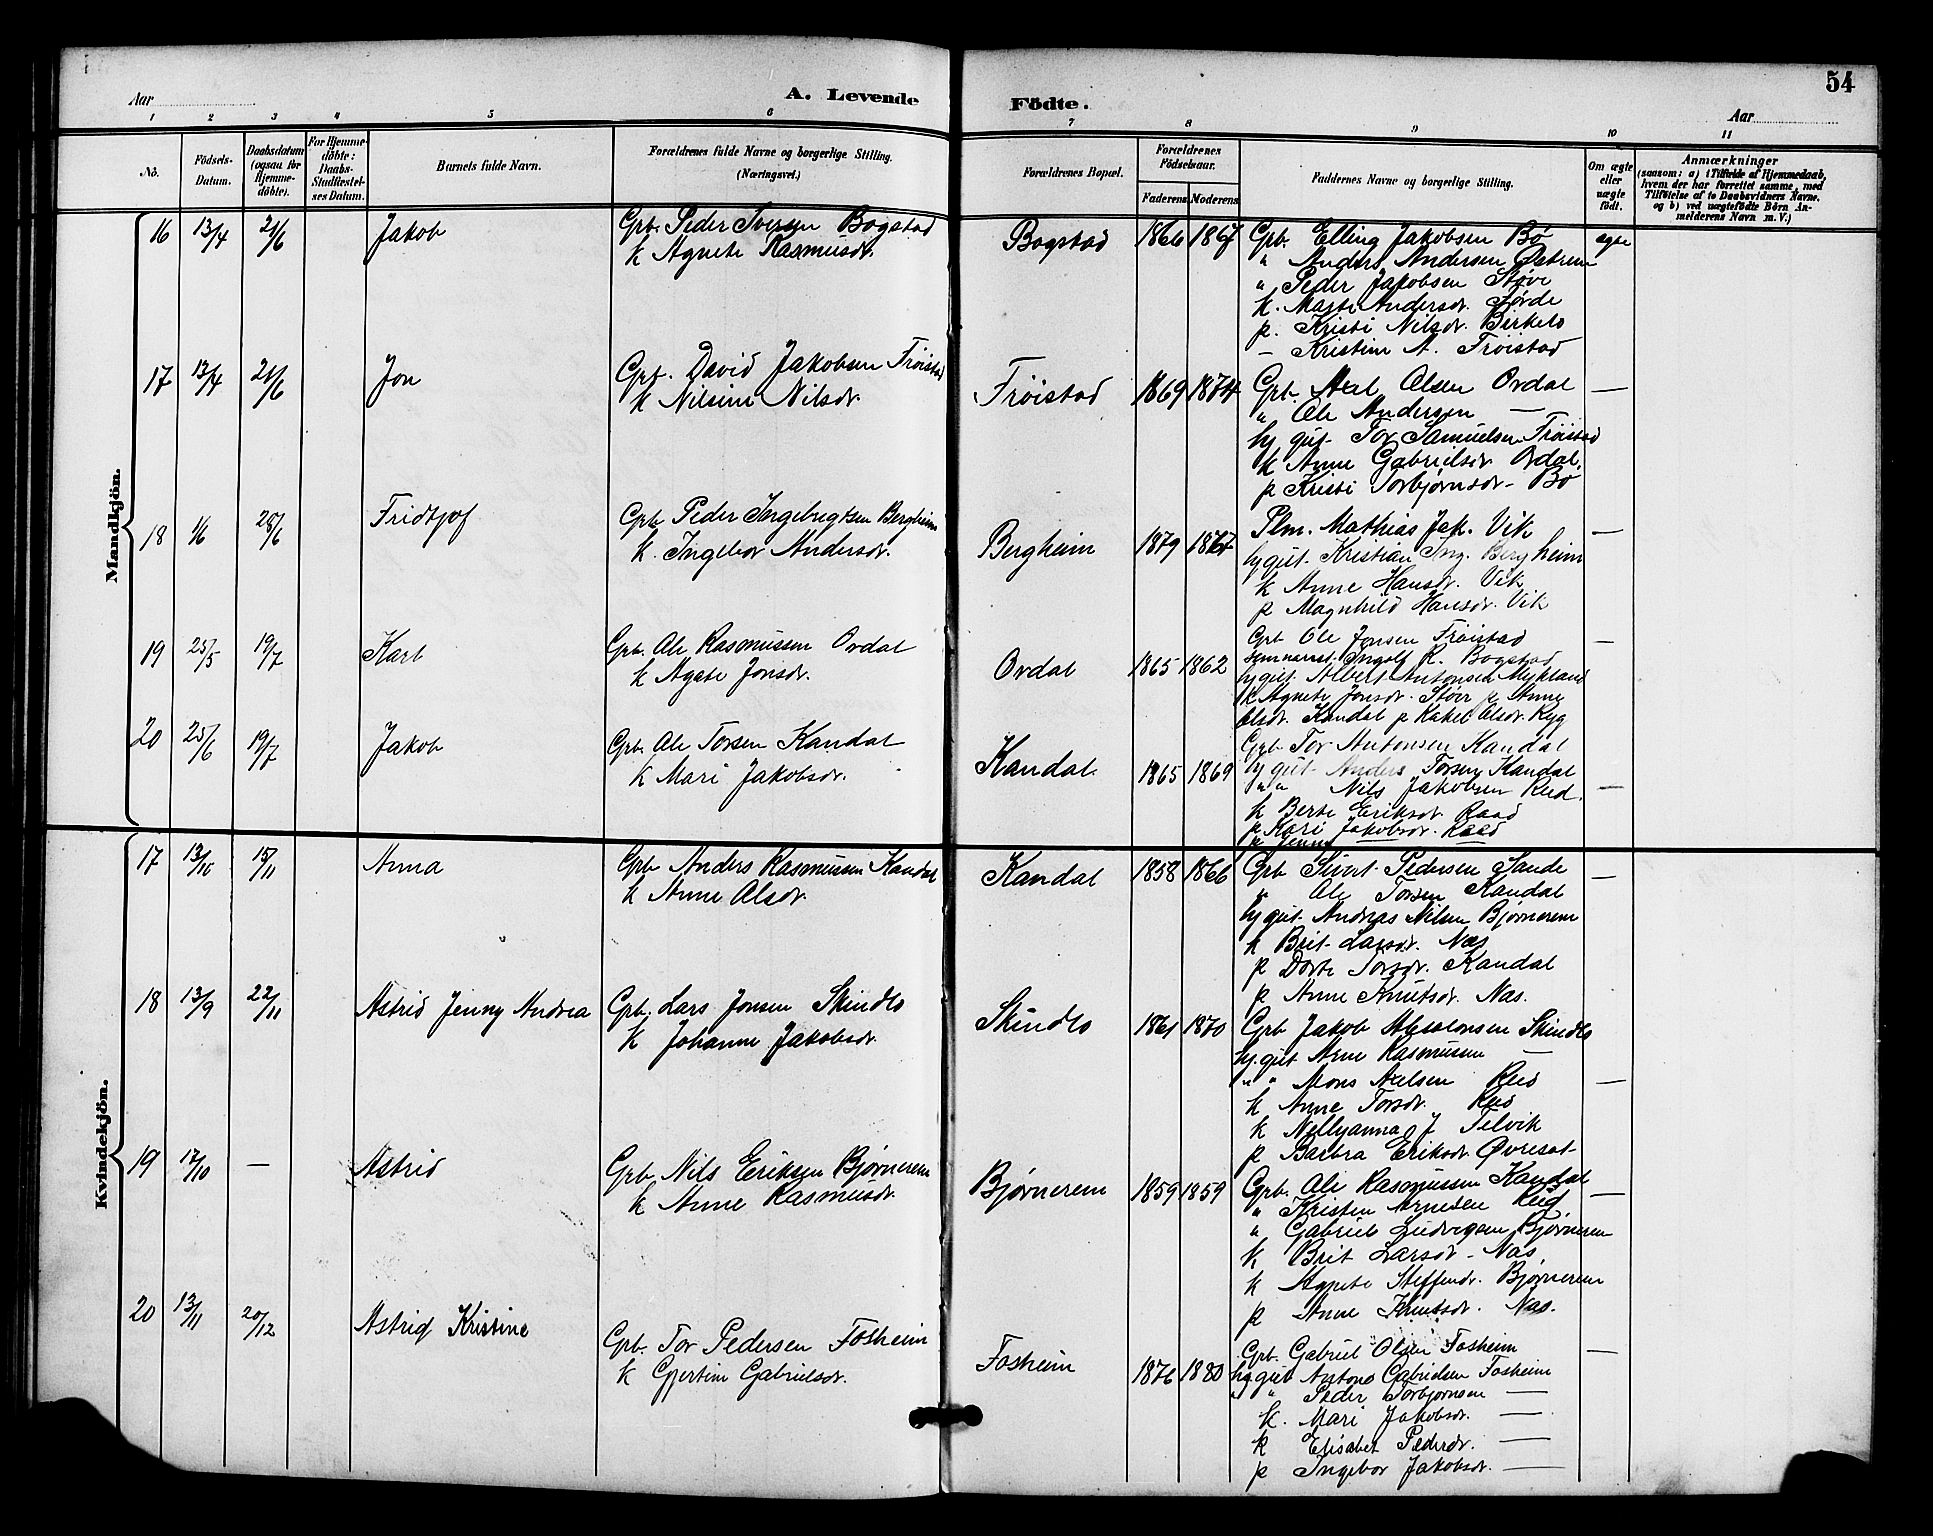 54
Aar
A. Levende
Födte.
Aar
1 2 3 4 5 6 7 8 9 10 11
No.
Födsels-
Datum.
Daabsdatum
(ogsaa for
Hjemme-
döbte).
For Hjemme-
döbte:
Daabs-
Stadfæstel-
ses Datum.
Barnets fulde Navn.
Forældrenes fulde Navne og borgerlige Stilling.
(Næringsvei.)
Forældrenes Bopæl.
Forældrenes
Födselsaar.
Faderens Moderens
Faddernes Navne og borgerlige Stilling.
Om ægte
eller
uægte
født.
Anmærkninger
(saasom: a) i Tilfælde af Hjemmedaab,
hvem der har forrettet samme, med
Tilföielse af to Daabsvidners Navne.
og b) ved uægtefödte Börn An-
melderens Navn m. V.)
Mandkjön.
16 13/4 21/6 Jakob
Grb. Peder Iversen Bogstad
k Agnete Rasmusdr.
Bogstad 1866 1867
Grb. Elling Jakobsen Bø
" Anders Andersen Østrem
" Peder Jakobsen Støve
k. Marte Andersdr. Førde
p. Kristi Nilsdr. Birkelo
- Kristine A. Frøistad
ægte
17 13/4 21/6 Jon
Grb. David Jakobsen Frøistad
k Nilsine Nilsdr.
Frøistad 1869 1874
Grb. Axel Olsen Ordal —
" Ole Andersen —
Ug gut. Tor Samuelsen Frøistad
k Anne Gabrielsdr Ordal.
p Kristi Torbjørnsdr. Bø
18 1/6 28/6 Fridtjof
Grb Peder Ingebrigtsen Bergheim
k. Ingebor Andersdr.
Bergheim 1879 1867
Plm. Mathias Jak. Vik —
ug gut. Kristian Ing. Bergheim
k Anne Hansdr. Vik
p Magnhild Hansdr. Vik
19 25/5 19/7 Karl
Grb. Ole Rasmussen Ordal
k Agate Jonsdr.
Ordal 1865 1862
Grb Ole Jonsen Frøistad —
Seminarist. Ingolf R. Bogstad
ug gut. Albert Antonsen Myklund
k Agnete Jonsdr. Støve p Anne
Olsdr. Kandal p Rakel Olsdr. Ryg
20 25/6 19/7 Jakob
Grb. Ole Torsen Kandal
k Mari Jakobsdr.
Kandal 1865 1869
Grb Tor Antonsen Kandal
ug gut. Anders Torsen Kandal
" " Nils Jakobsen Rud. —
k Berte Eriksdr. Raad
p Kari Jakobsdr. Raad
p Jenny — —
Kvindekjön.
17 15/11 Anna
Grb Anders Rasmussen Kandal
k Anne Olsdr.
Kandal 1858 1866
Grb Sivert Pedersen Sande —
" Ole Torsen Kandal
ug gut. Andreas Nilsen Bjørnerem
k Brit Larsdr. Nas
p Dorte Torsdr. Kandal
p Anne Knutsdr. Nas.
18 13/9 22/11 Astrid Jenny Andrea
Grb. Lars Jonsen Skindlo
k Johanne Jakobsdr.
Skindlo 1861 1870
Grb Jakob Absalonsen Skindlo
ug. gut Arne Rasmussen —
" " Mons Axelsen Rud —
k Anne Torsdr. Rud
k Nellyanna J
p Barbra Eriksdr. Øvreset
19 17/10 — Astrid
Grb. Nils Eriksen Bjørnerem
k Anne Rasmusdr.
Bjørnerem 1859 1859
Grb. Ole Rasmussen Kandal —
" Kristen Arnesen Rud
" Gabriel Ludvigsen Bjørnerem
k Brit Larsdr. Nas
k Agnete Steffendr. Bjørnerem
p Anne Knutsdr. Nas.
20 13/11 20/12 Astrid Kristine
Grb. Tor Pedersen Fosheim
k Gjertine Gabrielsdr.
Fosheim 1876 1880
Grb. Gabriel Olsen Fosheim —
ug gut Antons Gabrielsen Fosheim
" Peder Torbjørnsen —
k. Mari Jakobsdr. —
k Elisabet Pedersdr. —
p Ingebor Jakobsdr. —